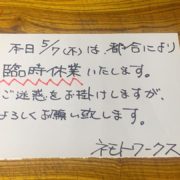 本日5/7(木)は、都合により
臨時休業いたします。
ご迷惑をお掛けしますが、
よろしくお願い致します。
ネモトワークス